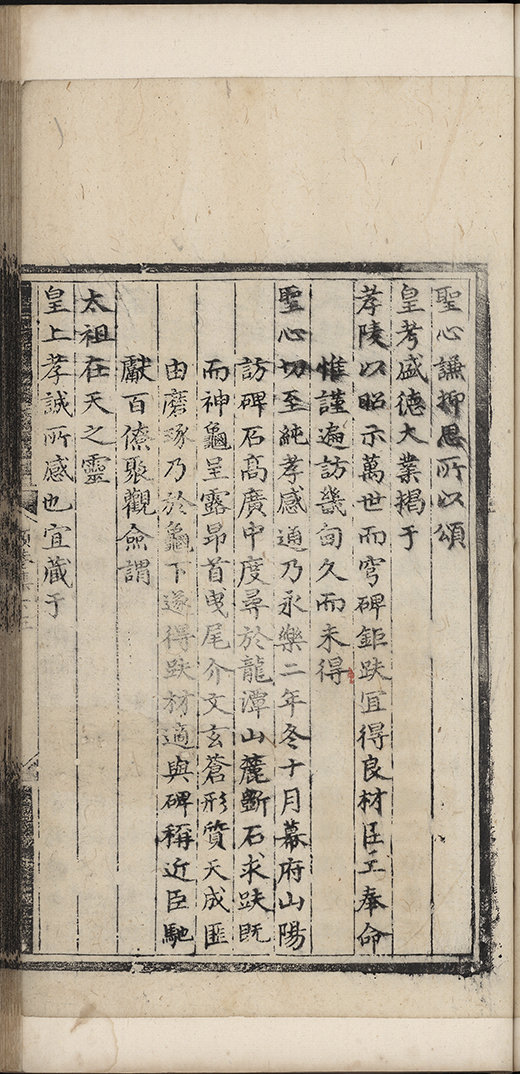 聖心謙抑思所以頌
皇考盛德大業掲于
孝陵以昭示萬世而穹碑鉅趺宜得良材臣工奉命
惟謹遍訪畿甸久而未得
聖心切至純孝感通乃永樂二年冬十月幕府山陽
訪碑石高廣中度尋於龍潭山麓斷石求趺既
而神龜呈露昂首曳尾介文玄蒼形質天成匪
由磨琢乃於龜下遂得趺材適與碑稱近臣馳
獻百僚聚觀僉謂
太祖在天之靈
皇上孝誠所感也宜藏于